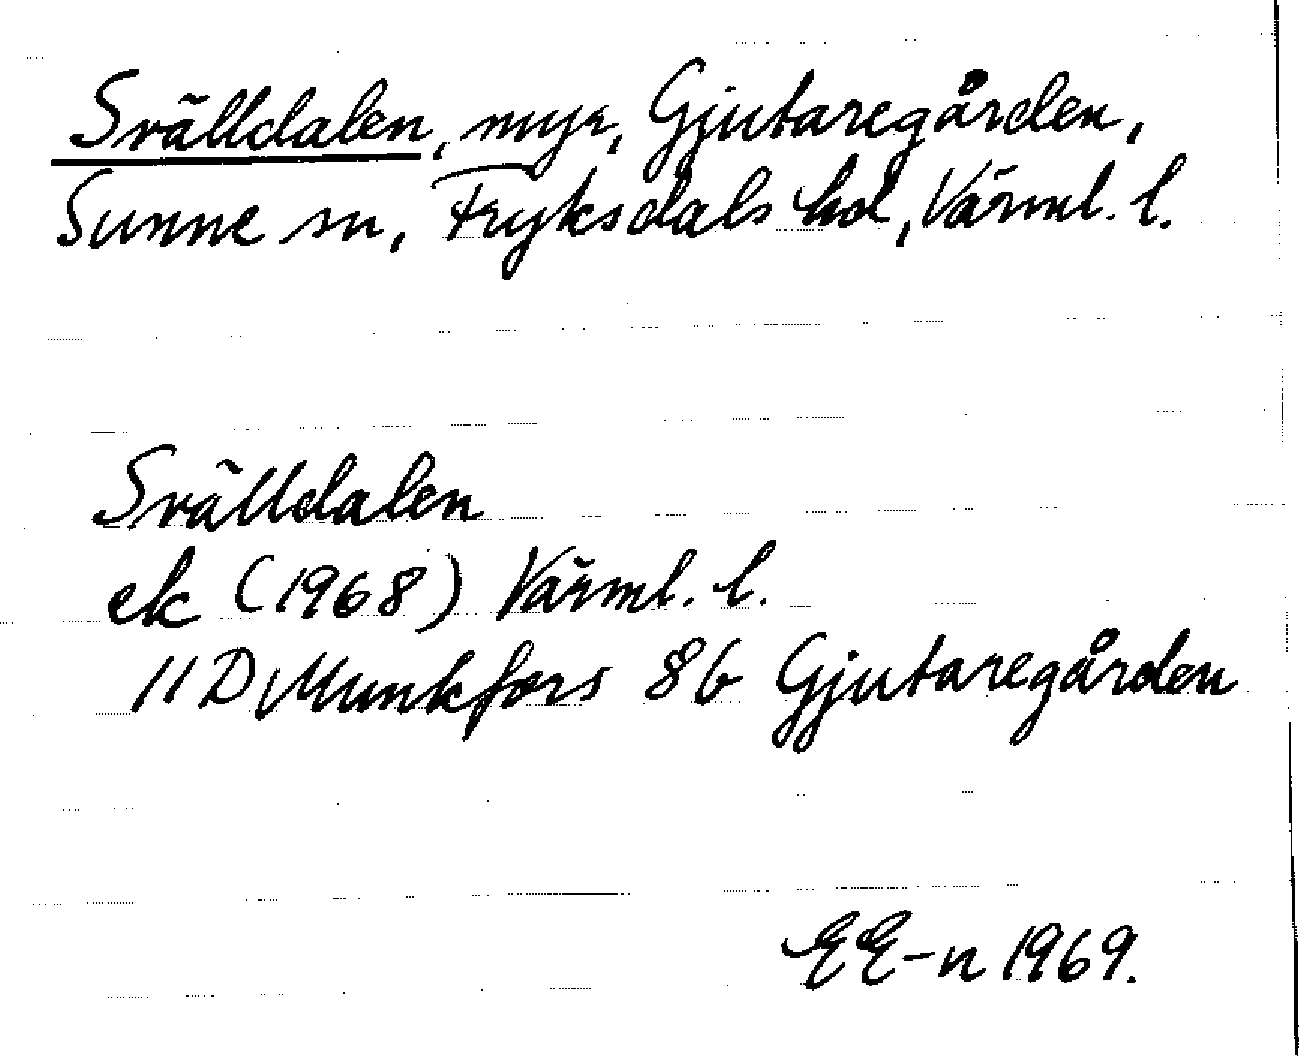 Svälldalen, myr, Gjutaregården,
Sunne sn, Fryksdals hd, Värml. l.
Svälldalen
ek (1968) Värml. l.
11D Munkfors 8b Gjutaregården
EE-n 1969.